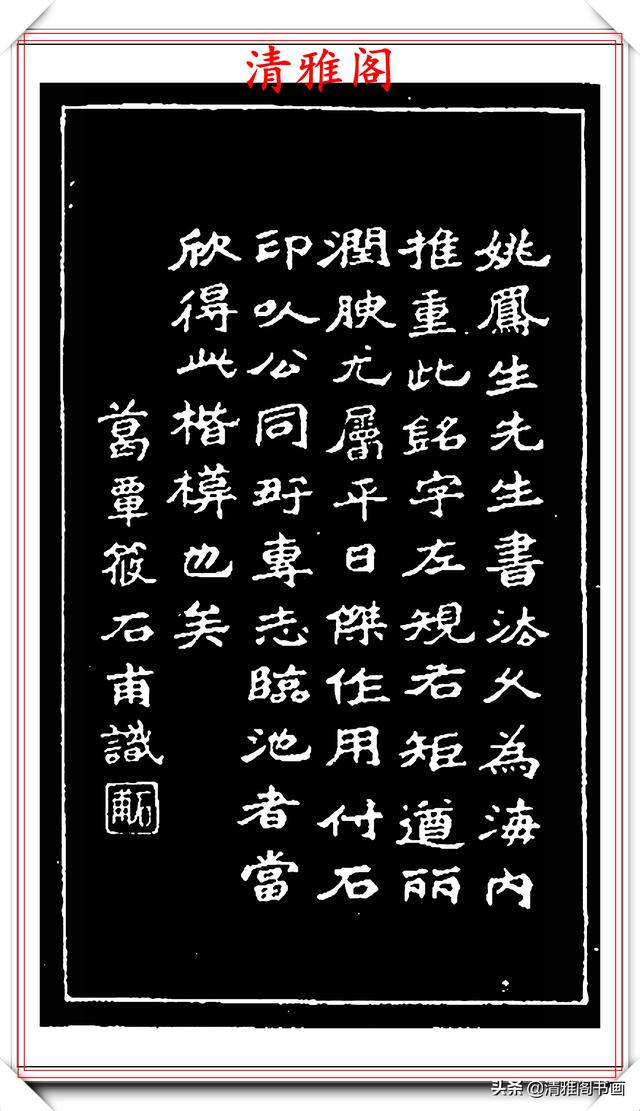 清雅阁
姚鳳生先生書法久為海内
推重此銘字左規右矩遒丽
潤腴尤屬平日傑作用付石
印㕥公同好專志臨池者當
欣得此楷模也矣
葛覃筱石甫識
石甫
头条 @清雅阁书画